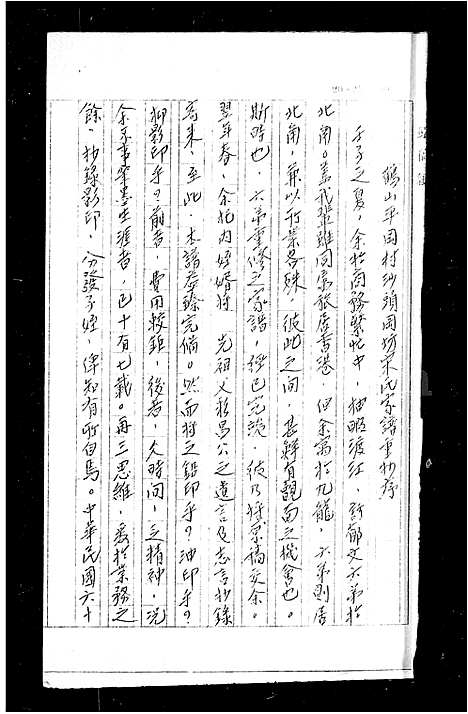 鶴山平岡村沙頭岡坊宋氏家譜重抄序
壬子之夏，余於商務繁忙中，抽暇渡江，訪郁文六弟於
北角。蓋我輩雖同寓旅居香港，但余寓於九龍，六弟則居
北角，兼以行業各殊，彼此之間，甚鮮有覯面之機會也。
斯時也，六弟重修之家譜，經已完竣，彼乃將原稿交余。
翌年春，余托內姪婿將　先祖父於昌公之遺言及志言抄錄
寄來，至此，本譜臻完備。然而將之鉛印乎？油印乎？
抑影印乎？前者，費用較鉅，後者，欠時間，乏精神，況
余不事筆墨生涯者，已十有七載。再三思維，爰於業務之
餘，抄錄影印，分發子姪，俾知有所自焉。中華民國六十